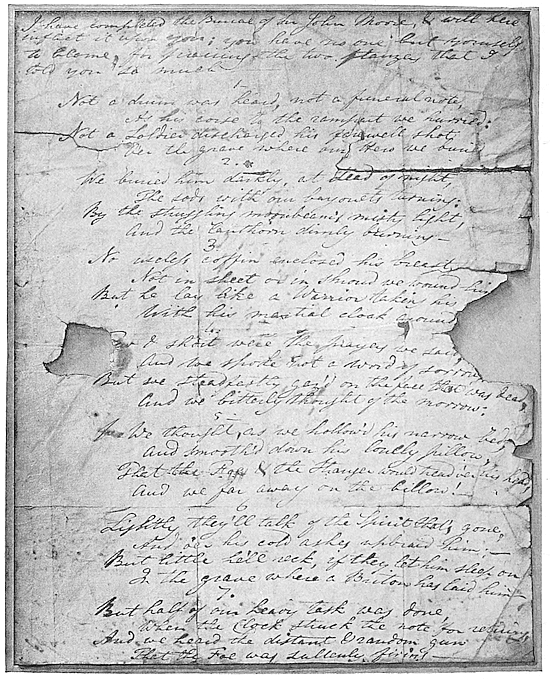 I have completed the Burial of Sir John Moore, & will here
inflict it upon you; you have no one but yourself
to blame, for praising the two stanzas that I
told you so much
1
Not a drum was heard, not a funeral note,
As his corse to the rampart we hurried;
Not a soldier discharged his farewell shot
O'er the grave where our Hero we buried
2.
We buried him darkly, at dead of night,
The sods with our bayonets turning.
By the struggling moonbeams misty light,
And the lanthorn dimly burning—
3
No useless coffin enclosed his breast
Not in sheet or in shroud we wound him
But he lay like a Warrior taking his
With his martial cloak around
Few & short were the prayers we said
And we spoke not a word of sorrow
But we steadfastly gaz'd on the face that was dead,
And we bitterly thought of the morrow.
5
We thought, as we hollow'd his narrow bed,
And smooth'd down his lonely pillow,
That the Foe & the Stranger would tread o'er his head,
And we far away on the billow!
6
Lightly they'll talk of the Spirit that's gone,
And o'er his cold ashes upbraid him;—
But little he'll reck, if they let him sleep on
In the grave where a Briton has laid him—
7.
But half of our heavy task was done
When the Clock struck the note for retiring
And we heard the distant & random gun
That the Foe was sullenly firing—